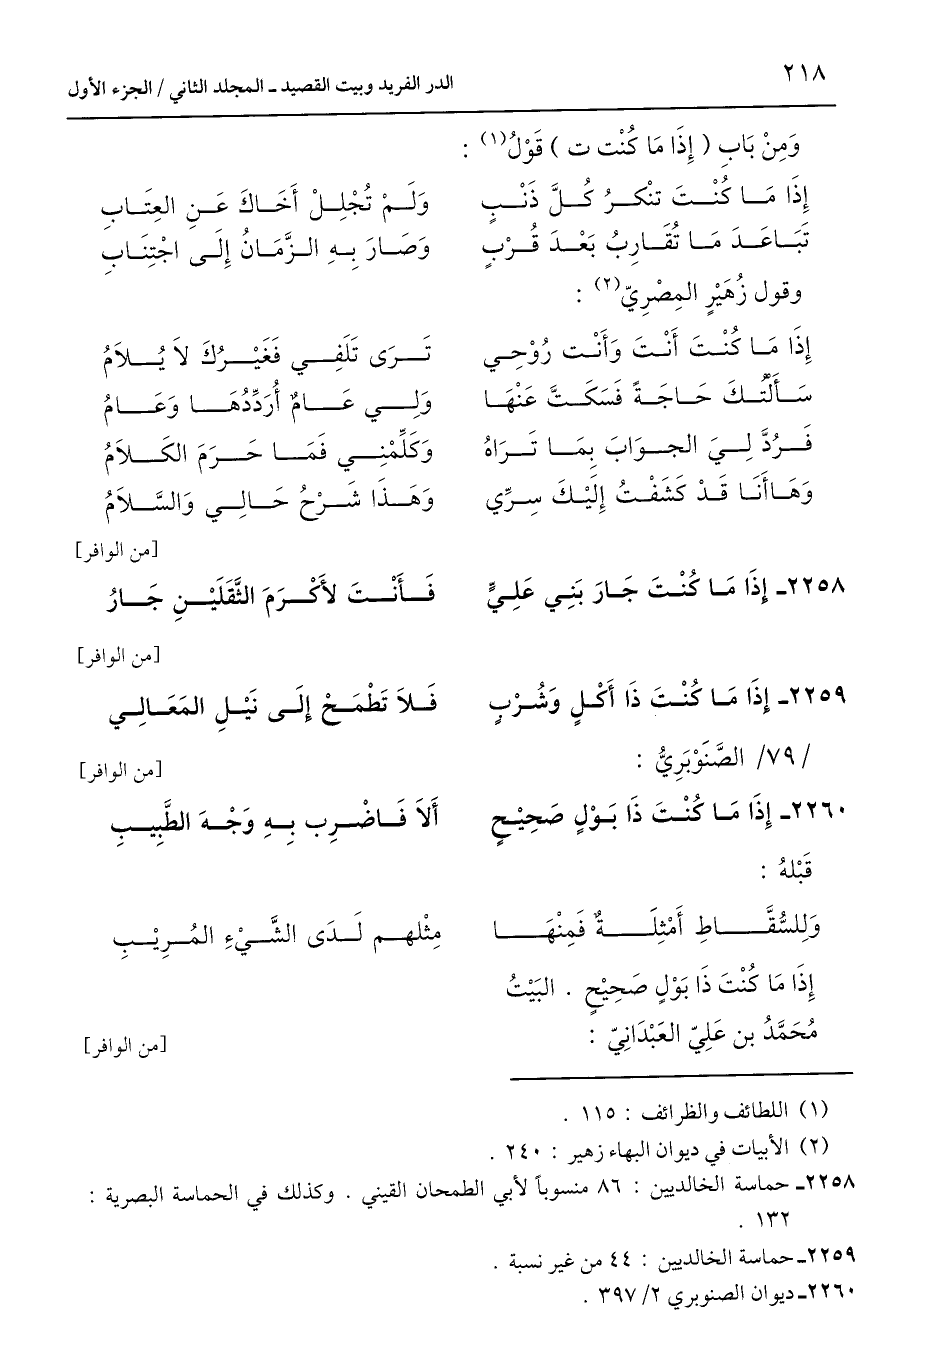 ٢١٨
الدر الفريد وبيت القصيد ـ المجلد الثاني / الجزء الأول
وَمِنْ بَابِ ( إِذَا مَا كُنْت ت ) قَوْلُ(١) :
إِذَا مَـا كُنْـتَ تنْكـرُ كُـلَّ ذَنْـبٍ وَلَـمْ تُجْلِـلْ أَخَـاكَ عَـنِ العِتَـابِ
تَبَـاعَـدَ مَـا تُقَـارِبُ بَعْـدَ قُـرْبٍ وَصَـارَ بِـهِ الـزَّمَـانُ إِلَـى اجْتِنَـابِ
وقول زُهَيْرٍ المِصْرِيّ(٢) :
إِذَا مَـا كُنْـتَ أَنْـتَ وَأَنْـت رُوْحِـي تَـرَى تَلَفِـي فَغَيْـرُكَ لاَ يُـلاَمُ
سَـأَلْتُـكَ حَـاجَـةً فَسَكَـتَّ عَنْهَـا وَلِـي عَـامٌ أُرَدِّدُهَـا وَعَـامُ
فَـرُدَّ لِـيَ الجـوَابَ بِمَـا تَـرَاهُ وَكَلِّمْنِـي فَمَـا حَـرَمَ الكَـلاَمُ
وَهَـاأَنَـا قَـدْ كَشَفْـتُ إِلَيْـكَ سِـرِّي وَهَـذَا شَـرْحُ حَـالِـي وَالسَّـلاَمُ
[من الوافر]
٢٢٥٨ـ إِذَا مَـا كُنْـتَ جَـارَ بَنِـي عَلِـيٍّ فَـأَنْـتَ لأَكْـرَمَ الثَّقَلَيْـنِ جَـارُ
[من الوافر]
٢٢٥٩ـ إِذَا مَـا كُنْـتَ ذَا أَكْـلٍ وَشُـرْبٍ فَـلاَ تَطْمَـحْ إِلَـى نَيْـلِ المَعَـالِـي
/ ٧٩/ الصَّنَوْبَرِيُّ : [من الوافر]
٢٢٦٠ـ إِذَا مَـا كُنْـتَ ذَا بَـوْلٍ صَحِيْـحٍ أَلاَ فَـاضْـرِب بِـهِ وَجْـهَ الطَّبِيـبِ
قَبْلهُ :
وَلِلسُّقَّـاطِ أَمْثِلَـةٌ فَمِنْهَـا مِثْلهـم لَـدَى الشَّـيْءِ المُـرِيْـبِ
إِذَا مَا كُنْتَ ذَا بَوْلٍ صَحِيْحٍ . البَيْتُ
مُحَمَّدُ بن عَلِيّ العَبْدَانِيّ : [من الوافر]
(١) اللطائف والظرائف : ١١٥ .
(٢) الأبيات في ديوان البهاء زهير : ٢٤٠ .
٢٢٥٨ـ حماسة الخالديين : ٨٦ منسوباً لأبي الطمحان القيني . وكذلك في الحماسة البصرية :
١٣٢ .
٢٢٥٩ـ حماسة الخالديين : ٤٤ من غير نسبة .
٢٢٦٠ـ ديوان الصنوبري ٢/ ٣٩٧ .